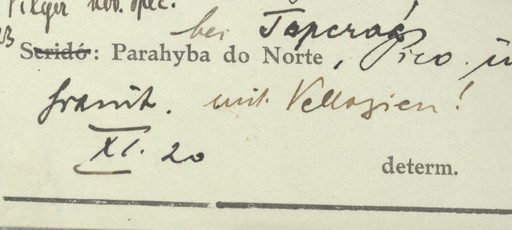 Pilger nov. spec.
bei Taperoá
Seridó: Parahyba do Norte, Pico. ü
Granit. mit Vellozien!
XI. 20
determ.